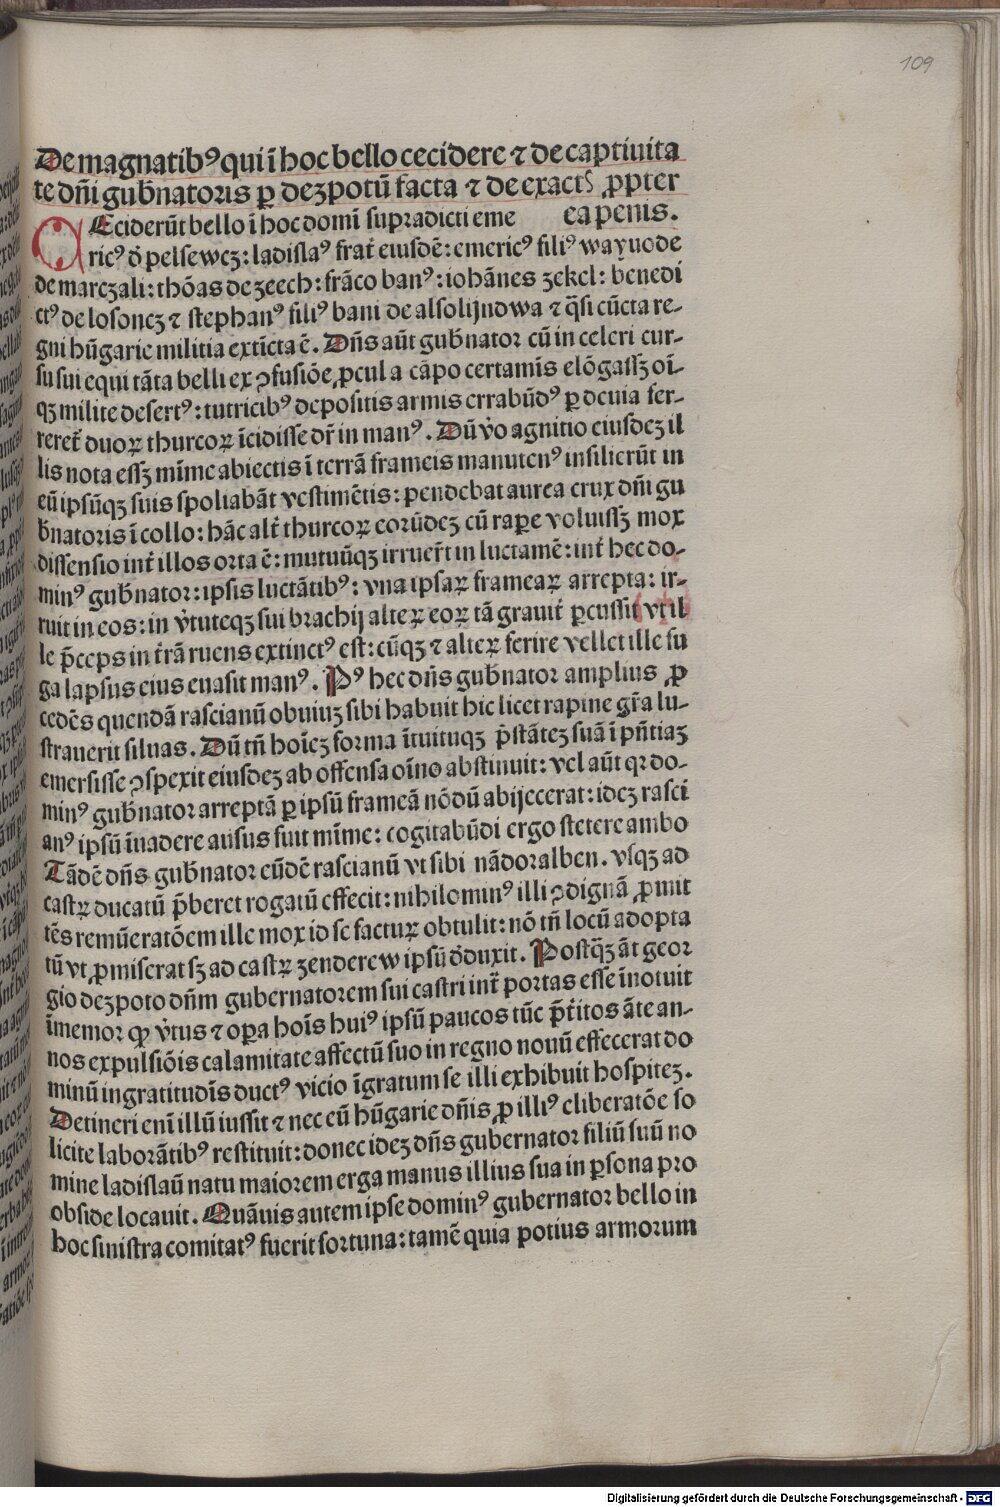 109
De magnatibꝰ qui ī hoc bello cecidere ⁊ de captiuita
te dn̄i gub̄natoris ꝑ dezpotū facta ⁊ de exact ꝓpter
Eciderūt bello ī hoc domī supradicti eme ea penis.
ricꝰ d̄ pelsewcz: ladislaꝰ frat̄ eiusdē: emericꝰ filiꝰ wayuode
de marczali: thōas de zeech: frāco banꝰ: iohānes zekel: benedi
ctꝰ de losoncz ⁊ stephanꝰ filiꝰ bani de alsolijndwa ⁊ q̄si cūcta re-
gni hūgarie militia extīcta ē. Dn̄s aūt gub̄nator cū in celeri cur-
su sui equi tāta belli ex ꝯfusiōe ꝓcul a cāpo certamīs elōgassꝫ oī-
qꝫ milite desertꝰ: tutricibꝰ depositis armis errabūdꝰ ꝑ deuia fer-
reret̄ duoꝝ thurcoꝝ īcidisse dr̄ in manꝰ. Dū v̄o agnitio eiusdeꝫ il
lis nota essꝫ mīme abiectis ī terrā frameis manutenꝰ insilierūt in
eū ipsūqꝫ suis spoliabāt vestimētis: pendebat aurea crux dn̄i gu
b̄natoris ī collo: hāc alt̄ thurcoꝝ eorūdeꝫ cū raꝑe voluissꝫ mox
dissensio int̄ illos orta ē: mutuūqꝫ irruer̄t in luctamē: int̄ hec do-
minꝰ gub̄nator: ipsis luctātibꝰ: vna ipsaꝝ frameaꝝ arrepta: ir-
ruit in eos: in v̄tuteqꝫ sui brachij alteꝝ eoꝝ tā grauit̄ ꝑcussit vt il
le p̄ceps in t̄rā ruens extinctꝰ est: cūqꝫ ⁊ alteꝝ ferire vellet ille fu
ga lapsus eius euasit manꝰ. Pꝰ hec dn̄s gub̄nator amplius ꝓ
cedēs quendā rascianū obuiuꝫ sibi habuit hic licet rapine gr̄a lu-
strauerit siluas. Dū tn̄ hoīeꝫ forma ītuituqꝫ p̄stāteꝫ suā ī pn̄tiaꝫ
emersisse ꝯspexit eiusdeꝫ ab offensa oīno abstinuit: vel aūt qꝛ do-
minꝰ gub̄nator arreptā ꝑ ipsū frameā nōdū abijecerat: ideꝫ rasci
anꝰ ipsū īuadere ausus fuit mīme: cogitabūdi ergo stetere ambo
Tādē dn̄s gub̄nator eūdē rascianū vt sibi nādoralben. vsqꝫ ad
castꝝ ducatū p̄beret rogatū effecit: nihilominꝰ illi ꝯdignā ꝓmit
tēs remūeratōem ille mox id se factuꝝ obtulit: nō tn̄ locū adopta
tū vt ꝓmiserat sꝫ ad castꝝ zenderew ipsū d̄duxit. Postq̄ꝫ āt geor
gio deꝫpoto dn̄m gubernatorem sui castri int̄ portas esse īnotuit
īmemor ꝙ v̄tus ⁊ oꝑa hoīs huiꝰ ipsū paucos tūc p̄t̄itos āte an-
nos expulsiōis calamitate affectū suo in regno nouū effecerat do
minū ingratitudīs ductꝰ vicio īgratum se illi exhibuit hospiteꝫ.
Detineri eni illū iussit ⁊ nec eū hūgarie dn̄is ꝓ illiꝰ eliberatōe so
licite laborātibꝰ restituit: donec ideꝫ dn̄s gubernator filiū suū no
mine ladislaū natu maiorem erga manus illius sua in ꝑsona pro
obside locauit. Quāuis autem ipse dominꝰ gubernator bello in
hoc sinistra comitatꝰ fuerit fortuna: tamē quia potius armorum
Digitalisierung gefördert durch die Deutsche Forschungsgemeinschaft - DFG